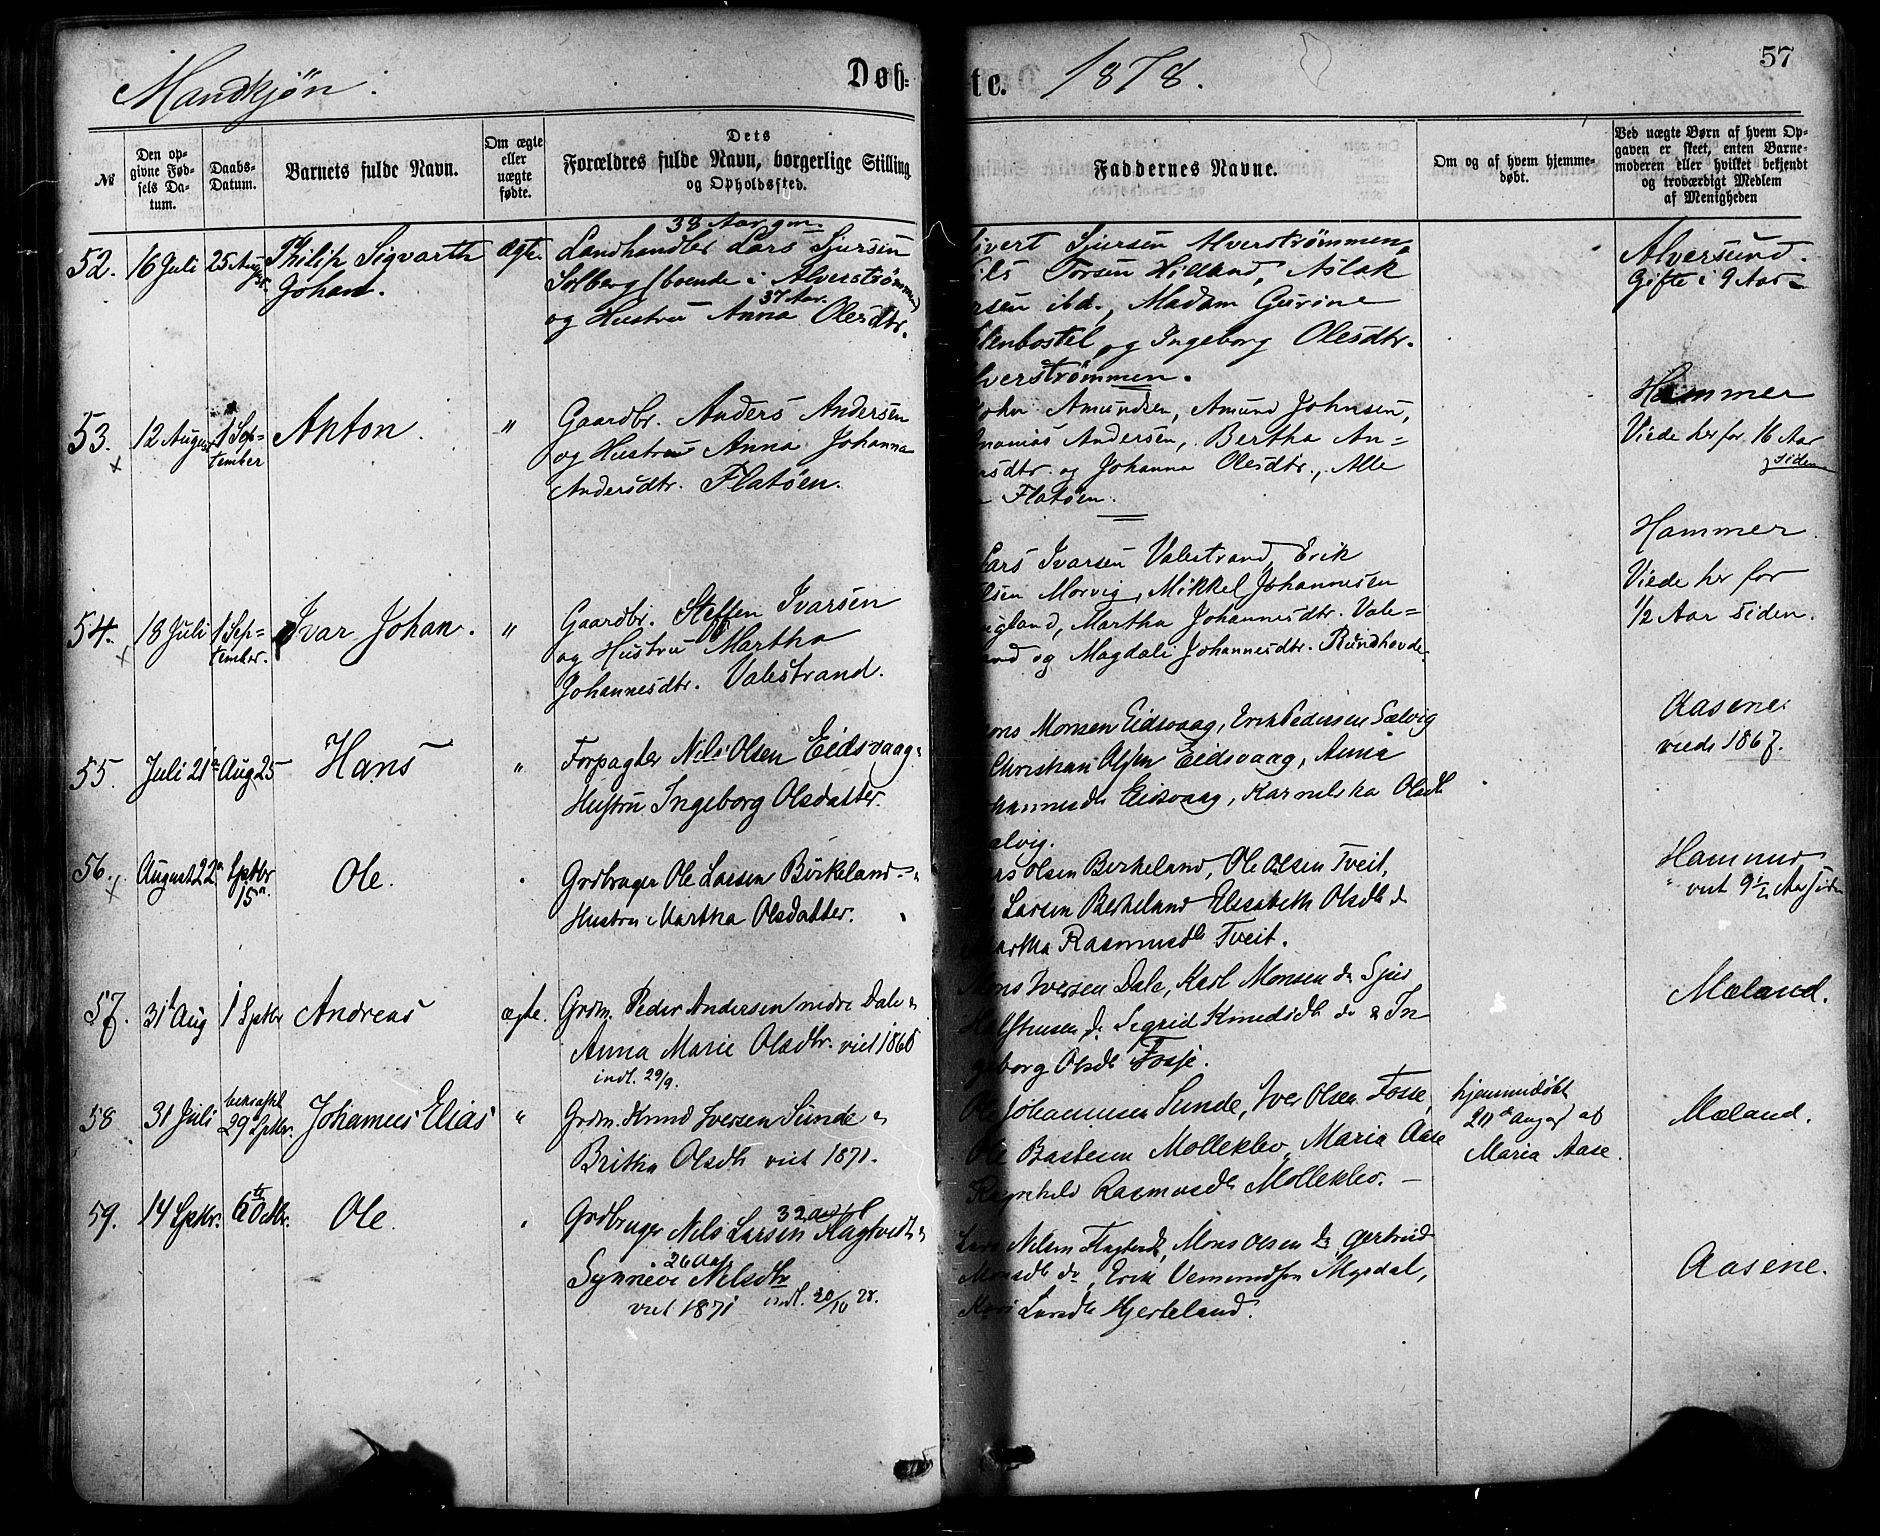 Mandkjøn.
Døb-
te. 1878.
57
№
Den op-
givne Fød-
sels Da-
tum.
Daabs-
Datum.
Barnets fulde Navn.
Om ægte
eller
uægte
fødte.
Dets
Forældres fulde Navn, borgerlige Stilling
og Opholdssted.
Faddernes Navne.
Om og af hvem hjemme-
døbt.
Ved uægte Børn af hvem Op-
gaven er skeet, enten Barne-
moderen eller hvilket bekjendt
og troværdigt Medlem
af Menigheden
52. 16 Juli 25 August Philip Sigvarth
Johan.
ægte.
38 Aar gm
Landhandler Lars Sjursen
Solberg (boende i Alverstrømmen)
37 Aar.
og Hustru Anna Olesdtr.
ivert Sjursen Alverstrømmen,
ils Torsen Hilland, Aslak
rsen ibd., Madam Gurine
lenbostel og Ingeborg Olesdtr.
lverstrømmen.
Alversund.
Gifte i 9 Aar
53. 12 August 1 Sep-
tember
Anton. "
Gaardbr. Anders Andersen
og Hustru Anna Johanna
Andersdtr. Flatøen.
John Amundsen, Amund Johnsen,
nanias Andersen, Bertha An-
rsdtr. og Johanna Olesdtr., Alle
Flatøen.
Hammer
Viede her for 16 Aar
siden
54. 18 Juli 1 Sep-
tember.
Ivar Johan. "
Gaardbr. Steffen Ivarsen
og Hustru Martha
Johannesdtr. Valestrand.
Lars Ivarsen Valestrand, Erik
lsen Morvig, Mikkel Johannesen
ugland, Martha Johannesdtr. Vale-
nd og Magdali Johannesdtr. Rundhovde
Hammer
Viede her for
1/2 Aar siden.
55. Juli 21de Aug 25 Hans "
Forpagter Nils Olsen Eidsvaag
Hustru Ingeborg Olsdatter.
ons Monsen Eidsvaag, Erik Pedersen Sælvig
Christian Olsen Eidsvaag, Anna
hannesdtr Eidsvaag, Karnelska Olsdtr
ælvig.
Aasene
viede 1867.
56. August 22de Septbr
15de
Ole.
Grdbruger Ole Larsen Børkeland
Hustru Martha Olsdatter.
rs Olsen Berkeland, Ole Olsen Tveit,
Larsen Berkeland Elisabeth Olsdtr do
artha Rasmusdtr Tveit.
Hammer
viet 9 1/2 Aar siden
57. 31te Aug 1 Septbr Andreas ægte.
Grdm. Peder Andersen nedre Dale
Anna Marie Olsdtr. viet 1868
indl. 29/9.
Mons Iversen Dale, Karl Monsen do Sjur
Sigrid Knudsdtr do & In
geborg Olsdtr Fosse.
Mæland.
58 31 Juli bekræft
29 Septbr.
Johannes Elias "
Grdm. Knud Iversen Sunde
Britha Olsdtr viet 1871.
Ole Johannesen Sunde, Iver Olsen Fosse,
Ole Bastesen Mollekleo Maria Aase
Ragnhild Rasmusdtr Mollekleo.
hjemmedøbt
20de August af
Maria Aase.
Mæland.
59. 14 Septbr. 6te Octbr. Ole.
32 aar
Grdbruger Nils Larsen Flagtvedt
26 Aar
Synneve Nilsdtr
viet 1871 indl. 20/10 78.
Lars Nilsen Flagtvedt, Mons Olsen do Gertrud
Monsdtr do, Erik Vemundsen Myrdal,
Kari Larsdtr Hjerteland.
Aasene.